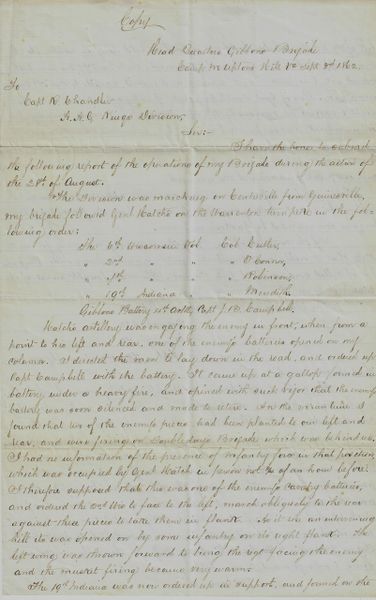 Copy
Head Quarters Gibbons Brigade
Camp on Uptons Hill Va Sept 3d 1862
To
Capt R Chandler
A.A.G. Kings Division,
Sir:-
I have the honor to submit
the following report of the operations of my Brigade during the action of
the 28th of August.
The Division was marching on Centreville from Gainesville,
my brigade followed Genl Hatchs on the Warrenton turnpike in the fol-
lowing order:
The 6th Wisconsin Vol Col Cutler,
" 2nd " " " O'Connor,
" 7th " " " Robinson,
" 19th Indiana " " Meredith,
Gibbons Battery 4th Artlly Capt J. B. Campbell.
Hatchs artillery was engaging the enemy in front, when from a
point to his left and rear, one of the enemys batteries opened on my
column. I directed the men to lay down in the road, and ordered up
Capt Campbell with the battery. It came up at a gallop formed in
battery under a heavy fire, and opened with such vigor that the enemys
battery was soon silenced and made to retire. In the meantime I
found that two of the enemys pieces had been planted to our left and
rear, and were firing on Doubledays Brigade which was behind us.
I had no information of the presence of infantry force in that position,
which was occupied by Genl Hatch in person not ¾ of an hour before.
I therefore supposed that this was one of the enemys Cavalry batteries,
and ordered the 2nd Wis to face to the left, march obliquely to the rear
against these pieces to take them in flank. As it an intervening
hill its was opened on by some infantry on its right flank. The
left wing was thrown forward to bring the regt facing the enemy
and the musket firing became very warm.
The 19th Indiana was now ordered up in support, and formed on the